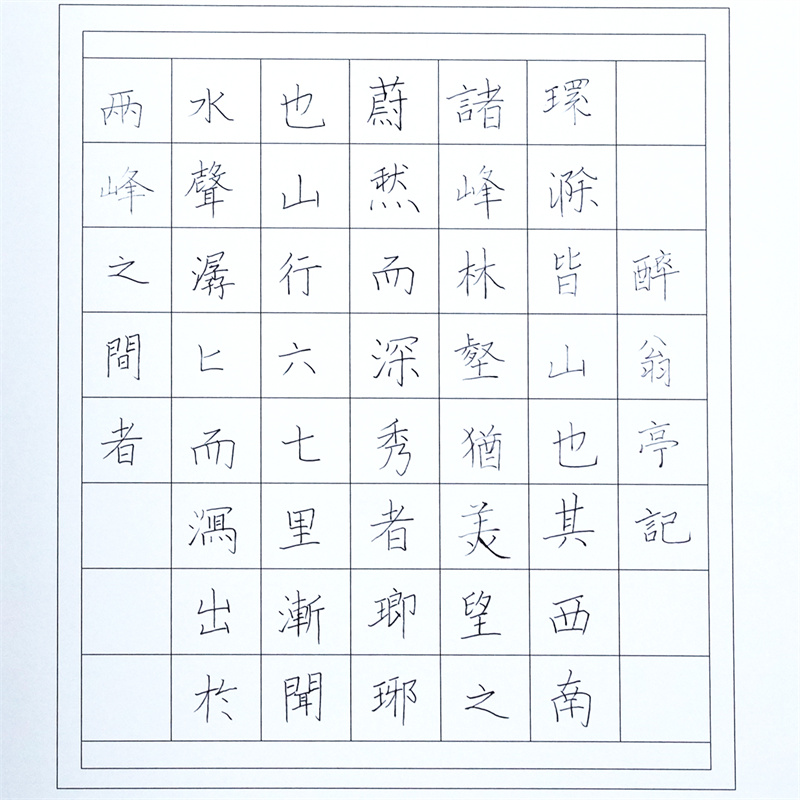 醉翁亭記
環滁皆山也其西南
諸峰林壑猶美望之
蔚然而深秀者瑯琊
也山行六七里漸聞
水聲潺匕而瀉出於
兩峰之間者